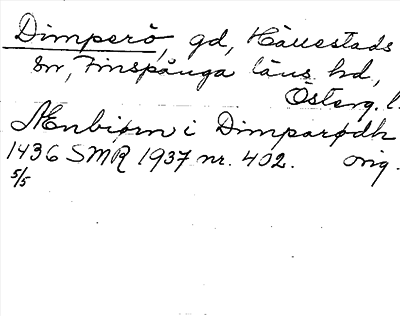 Dimperö, gd, Hällestads
sn, Finspånga läns hd,
Österg. l.
Ænbiørn i Dimparødh
1436 SMR 1937 nr. 402. orig.
5/5